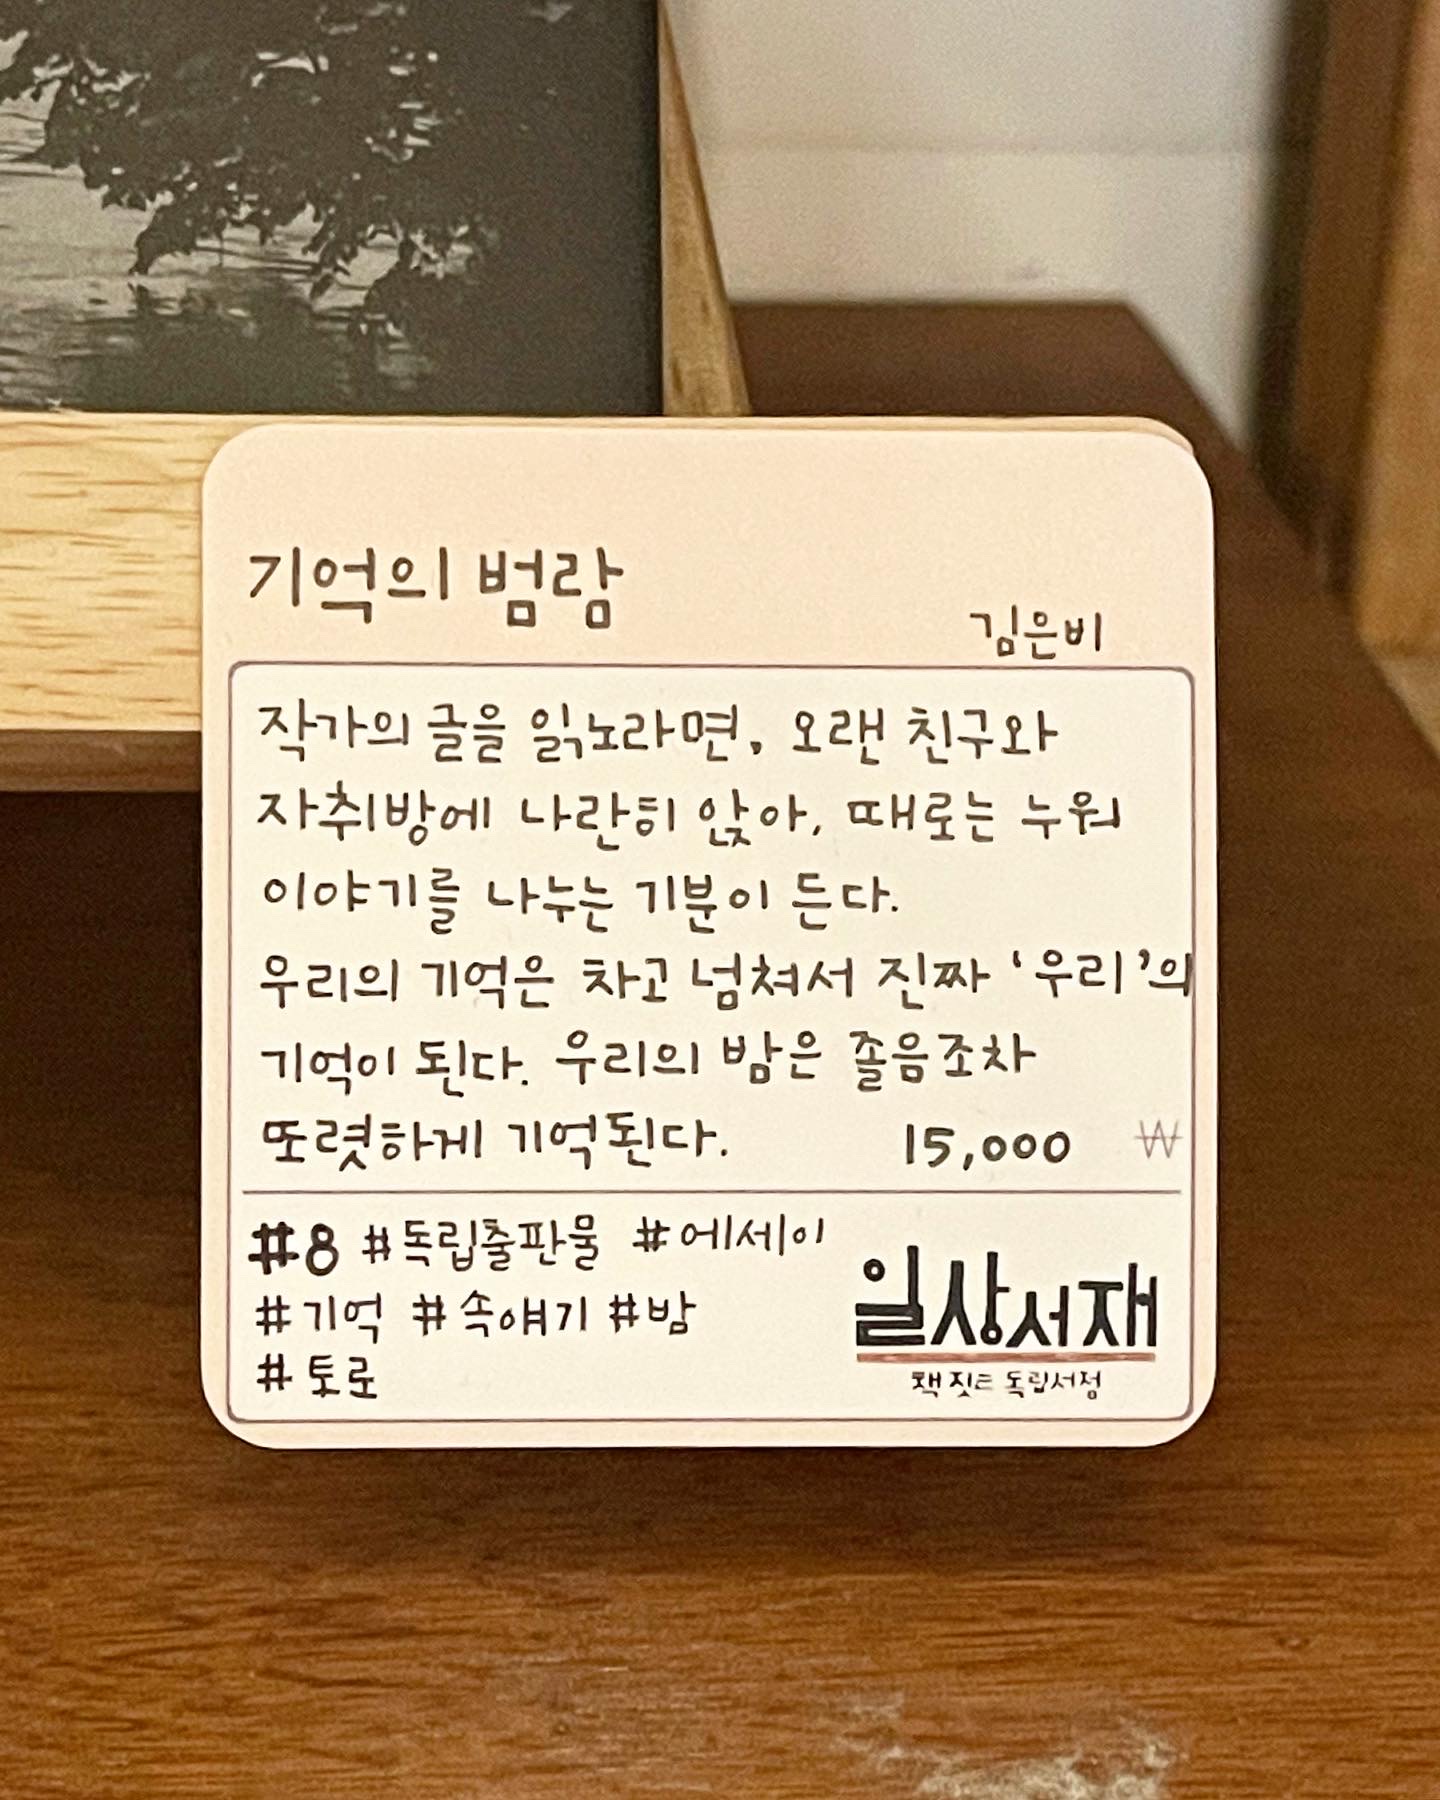 기억의 범람
김은비
작가의 글을 읽노라면, 오랜 친구와
자취방에 나란히 앉아, 때로는 누워
이야기를 나누는 기분이 든다.
우리의 기억은 차고 넘쳐서 진짜 '우리'의
기억이 된다. 우리의 밤은 졸음조차
또렷하게 기억된다. 15,000 ₩
#8 #독립출판물 #에세이
#기억 #속얘기 #밤
#토로
일상서재
책 짓는 독립서점